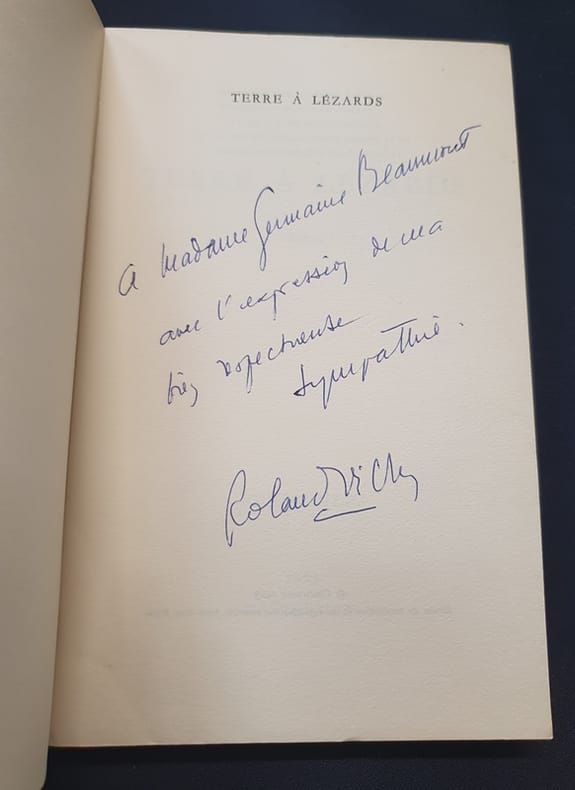 TERRE À LÉZARDS
A Madame Germaine Beaumont
avec l'expression de ma
très respectueuse
sympathie.
Roland Vichy